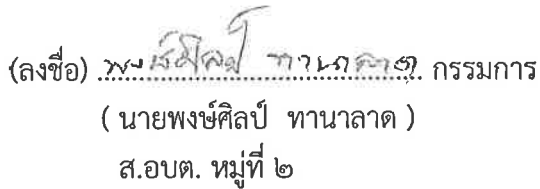 (ลงชื่อ) พงษ์ศิลป์ ทานาลาด กรรมการ
( นายพงษ์ศิลป์ ทานาลาด )
ส.อบต. หมู่ที่ ๒